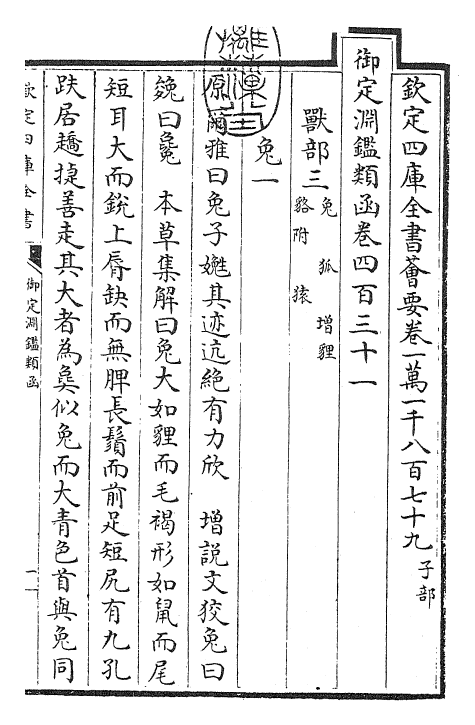 欽定四庫全書薈要卷一萬一千八百七十九 子部
御定淵鑑類函卷四百三十一
獸部三 兔 狐 增貍
貉附 猿
兔一
原爾雅曰兔子嬎其迹迒絶有力欣 增説文狡兔曰
㕙曰毚 本草集解曰兔大如貍而毛褐形如鼠而尾
短耳大而鋭上脣缺而無脾長鬚而前足短尻有九孔
趺居趫捷善走其大者為㲋似兔而大青色首與兔同
欽定四庫全書
御定淵鑑類函
一